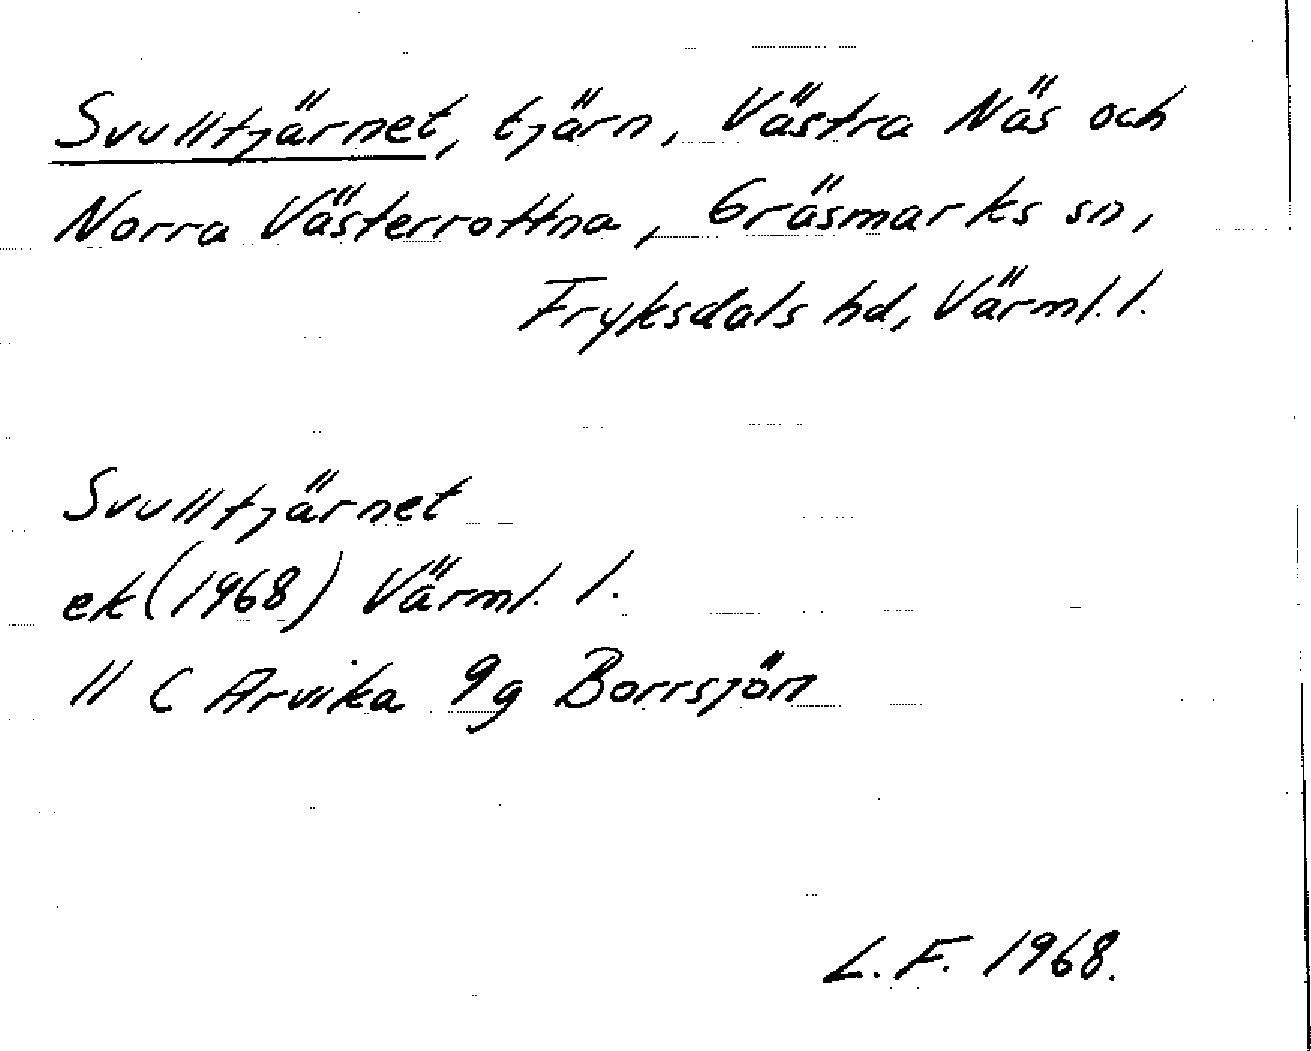 Svulltjärnet, tjärn, Västra Näs och
Norra Västerrottna, Gräsmarks sn,
Fryksdals hd, Värml. l.
Svulltjärnet
ek (1968) Värml. l.
11 C Arvika 9g Borrsjön
L. F. 1968.